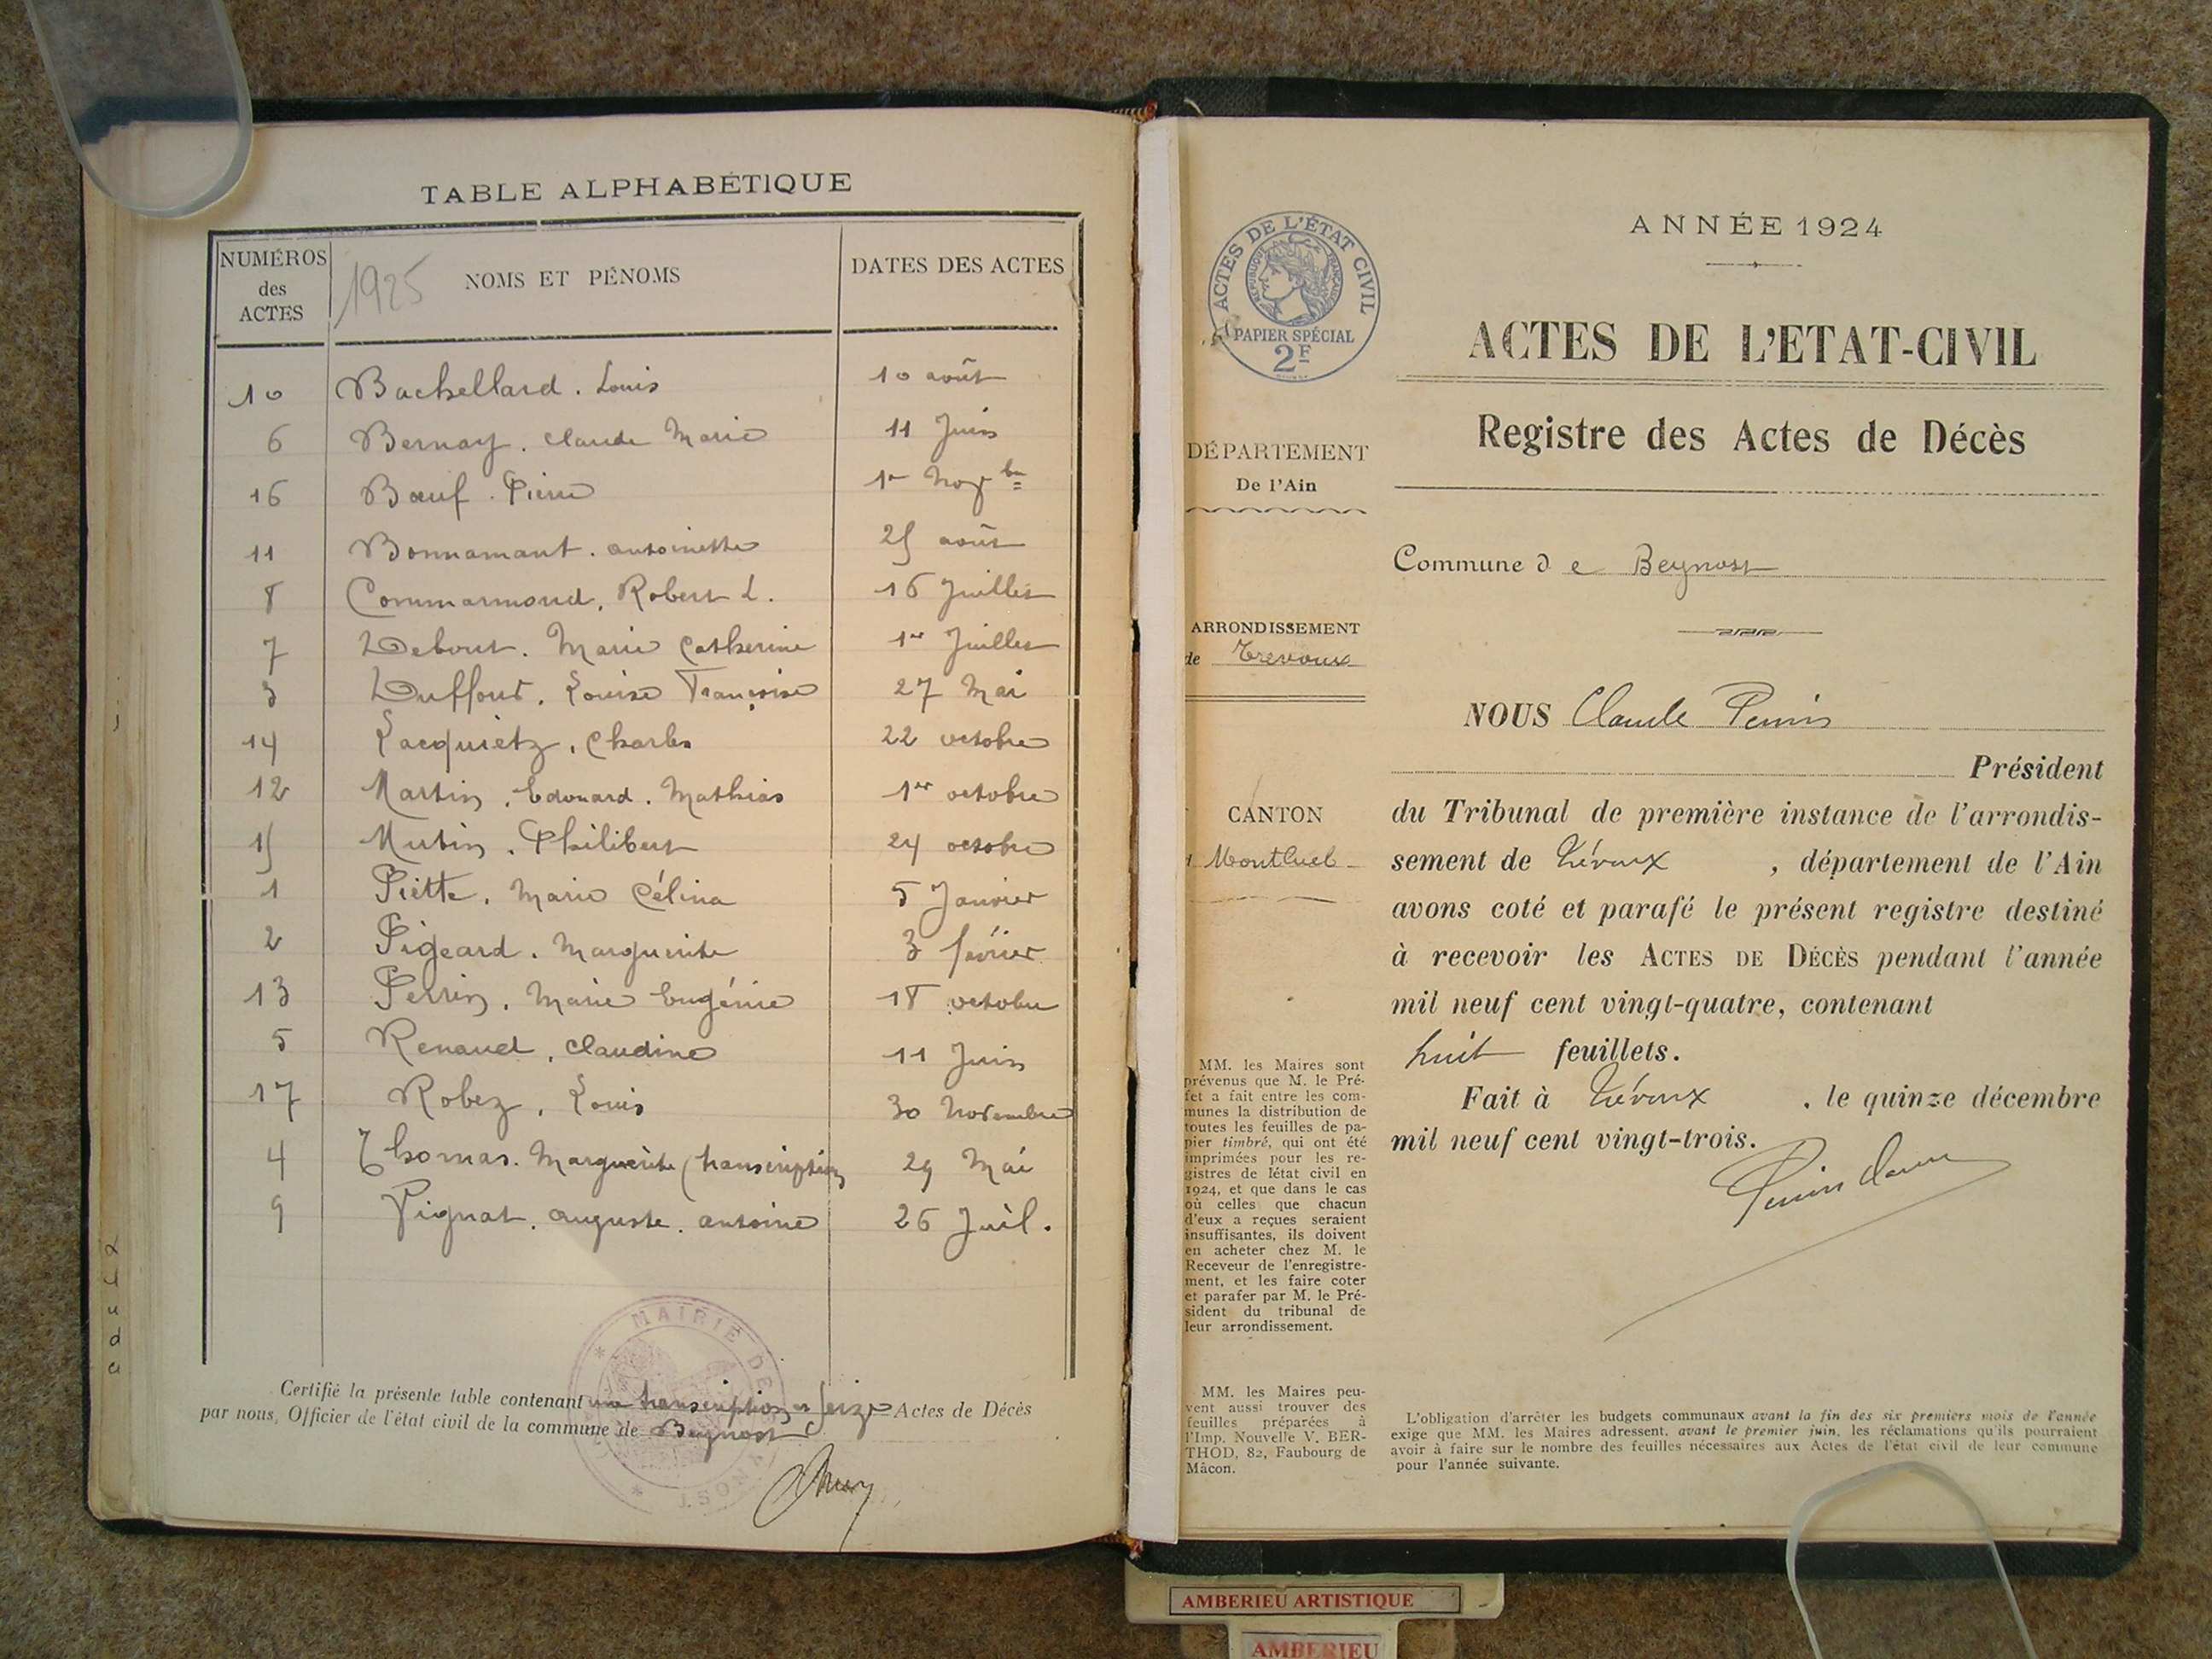 TABLE ALPHABÉTIQUE
NUMÉROS des ACTES 1925 NOMS ET PÉNOMS DATES DES ACTES
10 Bachellard. Louis 10 août
6 Bernay. Claude Marie 11 Juin
16 Bœuf. Pierre 1er Nov bre
11 Bonnamant. antoinette 25 août
8 Commarmond, Robert L. 16 Juillet
7 Debout. Marie Catherine 1er Juillet
3 Duffout. Louise Françoise 27 Mai
14 Lacquietz, Charles 22 octobre
12 Martin, Edouard. Mathias 1er octobre
15 Mutin. Philibert 24 octobre
1 Piette. Marie Célina 5 Janvier
2 Pigeard. Marguerite 3 février
13 Perrin, Marie Eugénie 18 octobre
5 Renaud, Claudine 11 Juin
17 Robez, Louis 30 Novembre
4 Thomas. Marguerite (transcription 29 Mai
9 Vignat. auguste. antoine 26 Juil.
MAIRIE DE
Certifié la présente table contenant une transcription et seize Actes de Décès
par nous, Officier de l'état civil de la commune de Beynost
ACTES DE L'ÉTAT CIVIL
RÉPUBLIQUE FRANÇAISE
PAPIER SPÉCIAL
2F
DÉPARTEMENT
De l'Ain
ARRONDISSEMENT
de Trévoux
CANTON
Montluel
MM. les Maires sont
prévenus que M. le Pré-
fet a fait entre les com-
munes la distribution de
toutes les feuilles de pa-
pier timbré, qui ont été
imprimées pour les re-
gistres de létat civil en
1924, et que dans le cas
où celles que chacun
d'eux a reçues seraient
insuffisantes, ils doivent
en acheter chez M. le
Receveur de l'enregistre-
ment, et les faire coter
et parafer par M. le Pré-
sident du tribunal de
leur arrondissement.
MM. les Maires peu-
vent aussi trouver des
feuilles préparées à
l'Imp. Nouvelle V. BER-
THOD, 82, Faubourg de
Mâcon.
ANNÉE 1924
ACTES DE L'ETAT-CIVIL
Registre des Actes de Décès
Commune de Beynost
NOUS Claude Perrin
Président
du Tribunal de première instance de l'arrondis-
sement de Trévoux, département de l'Ain
avons coté et parafé le présent registre destiné
à recevoir les ACTES DE DÉCÈS pendant l'année
mil neuf cent vingt-quatre, contenant
huit feuillets.
Fait à Trévoux, le quinze décembre
mil neuf cent vingt-trois.
L'obligation d'arrêter les budgets communaux avant la fin des six premiers mois de l'année
exige que MM. les Maires adressent, avant le premier juin, les réclamations qu'ils pourraient
avoir à faire sur le nombre des feuilles nécessaires aux Actes de l'état civil de leur commune
pour l'année suivante.
AMBERIEU ARTISTIQUE
AMBERIEU